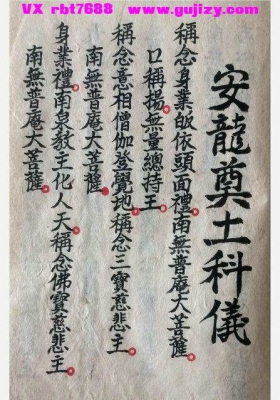 VX rbt7688 www.gujizy.com
安龍奠土科儀
稱念身業皈依頭面禮南無普庵大菩薩
口稱揚無量總持王
稱念意相僧伽登覺地稱念三寶慈悲主
南無普庵大菩薩
身業禮南泉教主化人天稱念佛寶慈悲主
南無普庵大菩薩